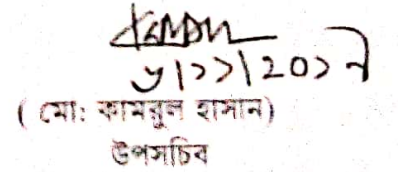 ৬|১১|২০১৭
( মো: কামরুল হাসান)
উপসচিব